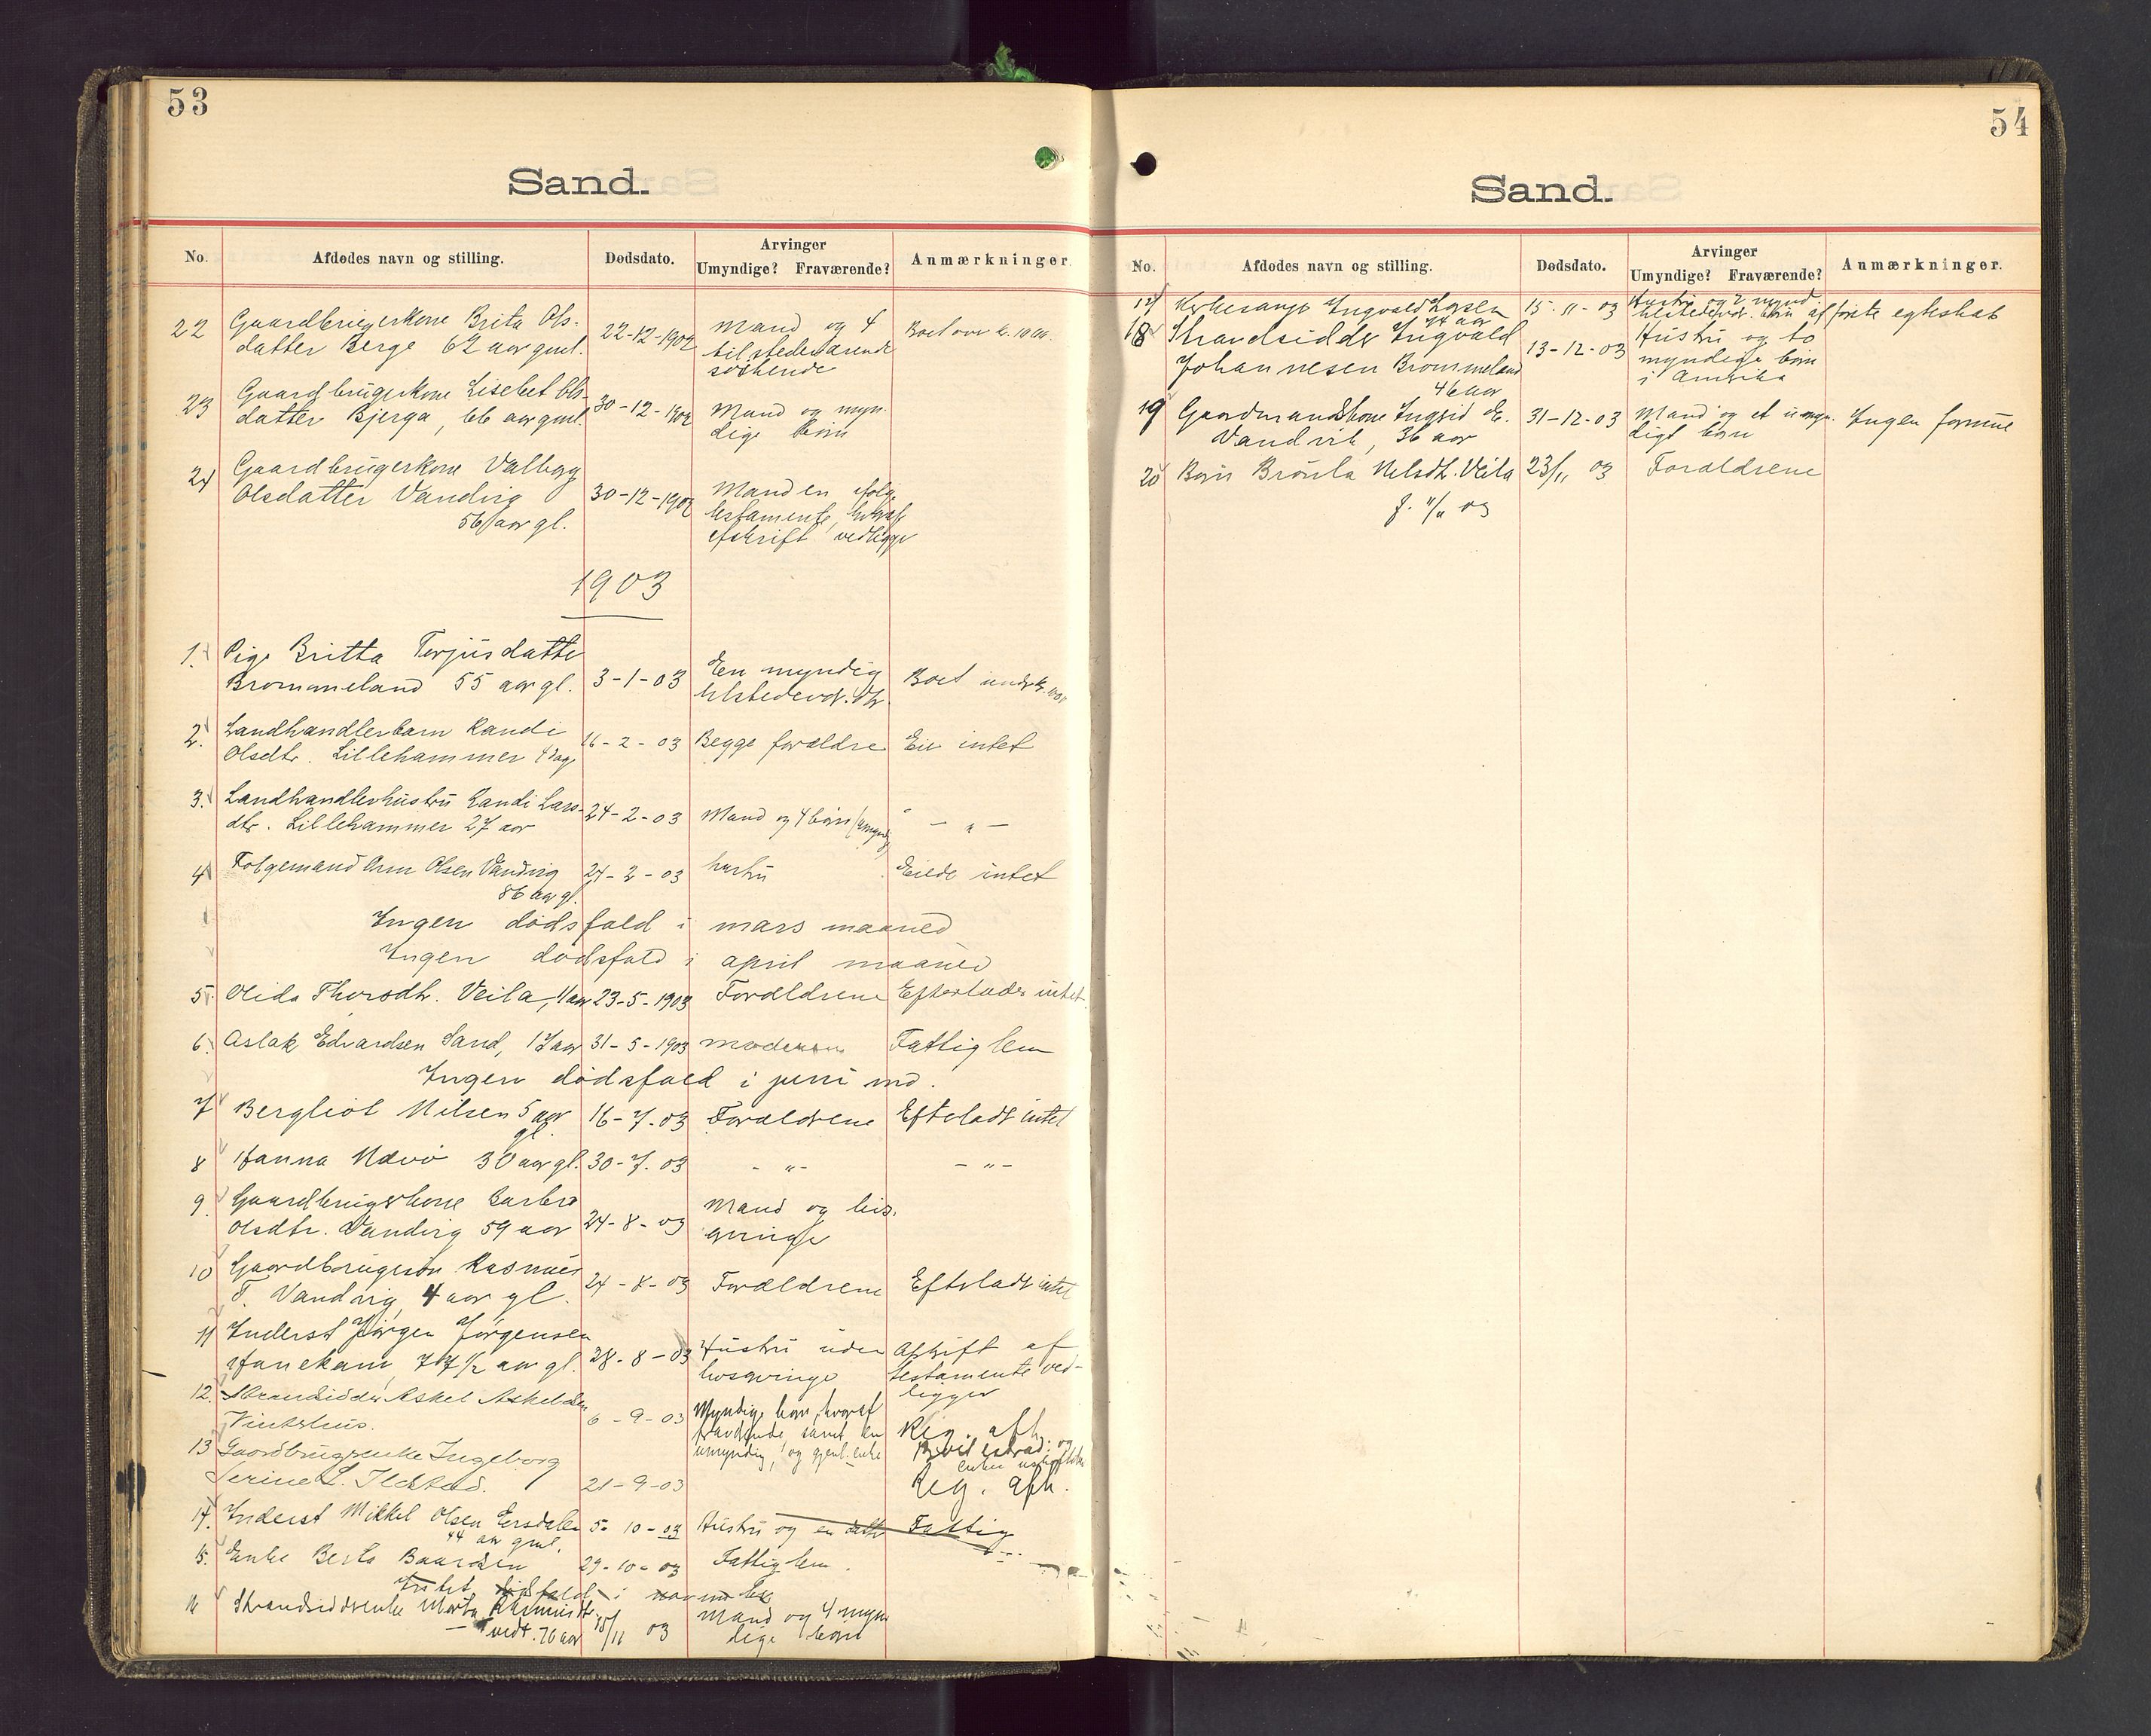 53
Sand.
No. Afdødes navn og stilling. Dødsdato. Arvinger Umyndige? Fraværende? Anmærkninger.
22 Gaardbrugerkone Brita Ols- 22-12-1902 Mand og 4 Boet over kr. 1000.
datter Berge 62 aar gml. tilstedeværende
søskende
23 Gaardbrugerkone Lisebet Ols- 30-12-1902 Mand og myn-
datter Bjerga, 66 aar gml. dige børn
24 Gaardbrugerkone Valborg 30-12-1902 Manden ifølge
Olsdatter Vandvig testamente, hvoraf
56 aar gl. afskrift vedligger
1903
1. Pige Britta Terjusdatter 3-1-03 En myndig Boet under kr. 1000
Brommeland 55 aar gl. tilstedevær.
2. Landhandlerbarn Randi 16-2-03 Begge forældre Eier intet
Olsdtr. Lillehammer 4 dage
3. Landhandlerhustru Randi Lars- 24-2-03 Mand og 4 børn (umyndig) - " -
dtr. Lillehammer 27 aar
4 Følgemand Olsen Vandvig 24-2-03 hustru Eiede intet
86 aar gl.
Ingen dødsfald i mars maaned
Ingen dødsfald i april maaned
5. Olida Thorsdtr. Veila, 11 aar 23-5-1903 Forældrene Efterlader intet
6. Aslak Edvardsen Sand, 17 aar 31-5-1903 moderen Fattiglem
Ingen dødsfald i juni md.
7 Bergliot Nilsen 5 aar 16-7-03 Forældrene Efterladt intet
gl.
8 Hanna Nævø 30 aar gl. 30-7-03 - " - - " -
9. Gaardbrugerkone Barbro 24-8-03 Mand og livs-
Olsdtr. Vandvig 59 aar arvinge
10 Gaardbrugersøn Rasmus 24-8-03 Forældrene Efterladt intet
T. Vandvig, 4 aar gl.
11 Inderst Jørgen Jørgensen 28-8-03 Hustru uden Afskrift af
Hanekam, 77 1/2 aar gl. livsarvinge testamente ved-
ligger
12. Strandsidder Askel Askelsen 6-9-03 Myndige børn, hvoraf Reg. afh.
Vinkelhus. fraværende, samt en
umyndig, og gjenl. enke
13 Gaardbrugerenke Ingeborg
Serine L. Ilstad. 21-9-03 Reg. afh.
14. Inderst Mikkel Olsen Eersdalen 5-10-03 Hustru og en datter Fattig
44 aar gml.
15. Enke Berta Baardsen 29-10-03 Fattiglem.
Intet dødsfald i november
16 Strandsidderenke Marta Rasmusdtr. 15/11 03 Mand og 4 myn
Tvedt. 76 aar dige børn
54
Sand.
No. Afdødes navn og stilling. Dødsdato. Arvinger Umyndige? Fraværende? Anmærkninger.
17 Kirkesanger Ingvald Larsen 15-11-03 Hustru og 2 mynd.
74 aar tilstedevær. børn af første egteskab
18 Strandsidder Ingvald 13-12-03 Hustru og to
Johannesen Brommeland myndige børn
46 aar i Amerika
19 Gaardmandskone Ingrid E. 31-12-03 Mand og et umyn- Ingen formue
Vandvik, 36 aar digt barn
20 Barn Brønla Nilsdt. Veila 23/11 03 Forældrene
f. 11/11 03